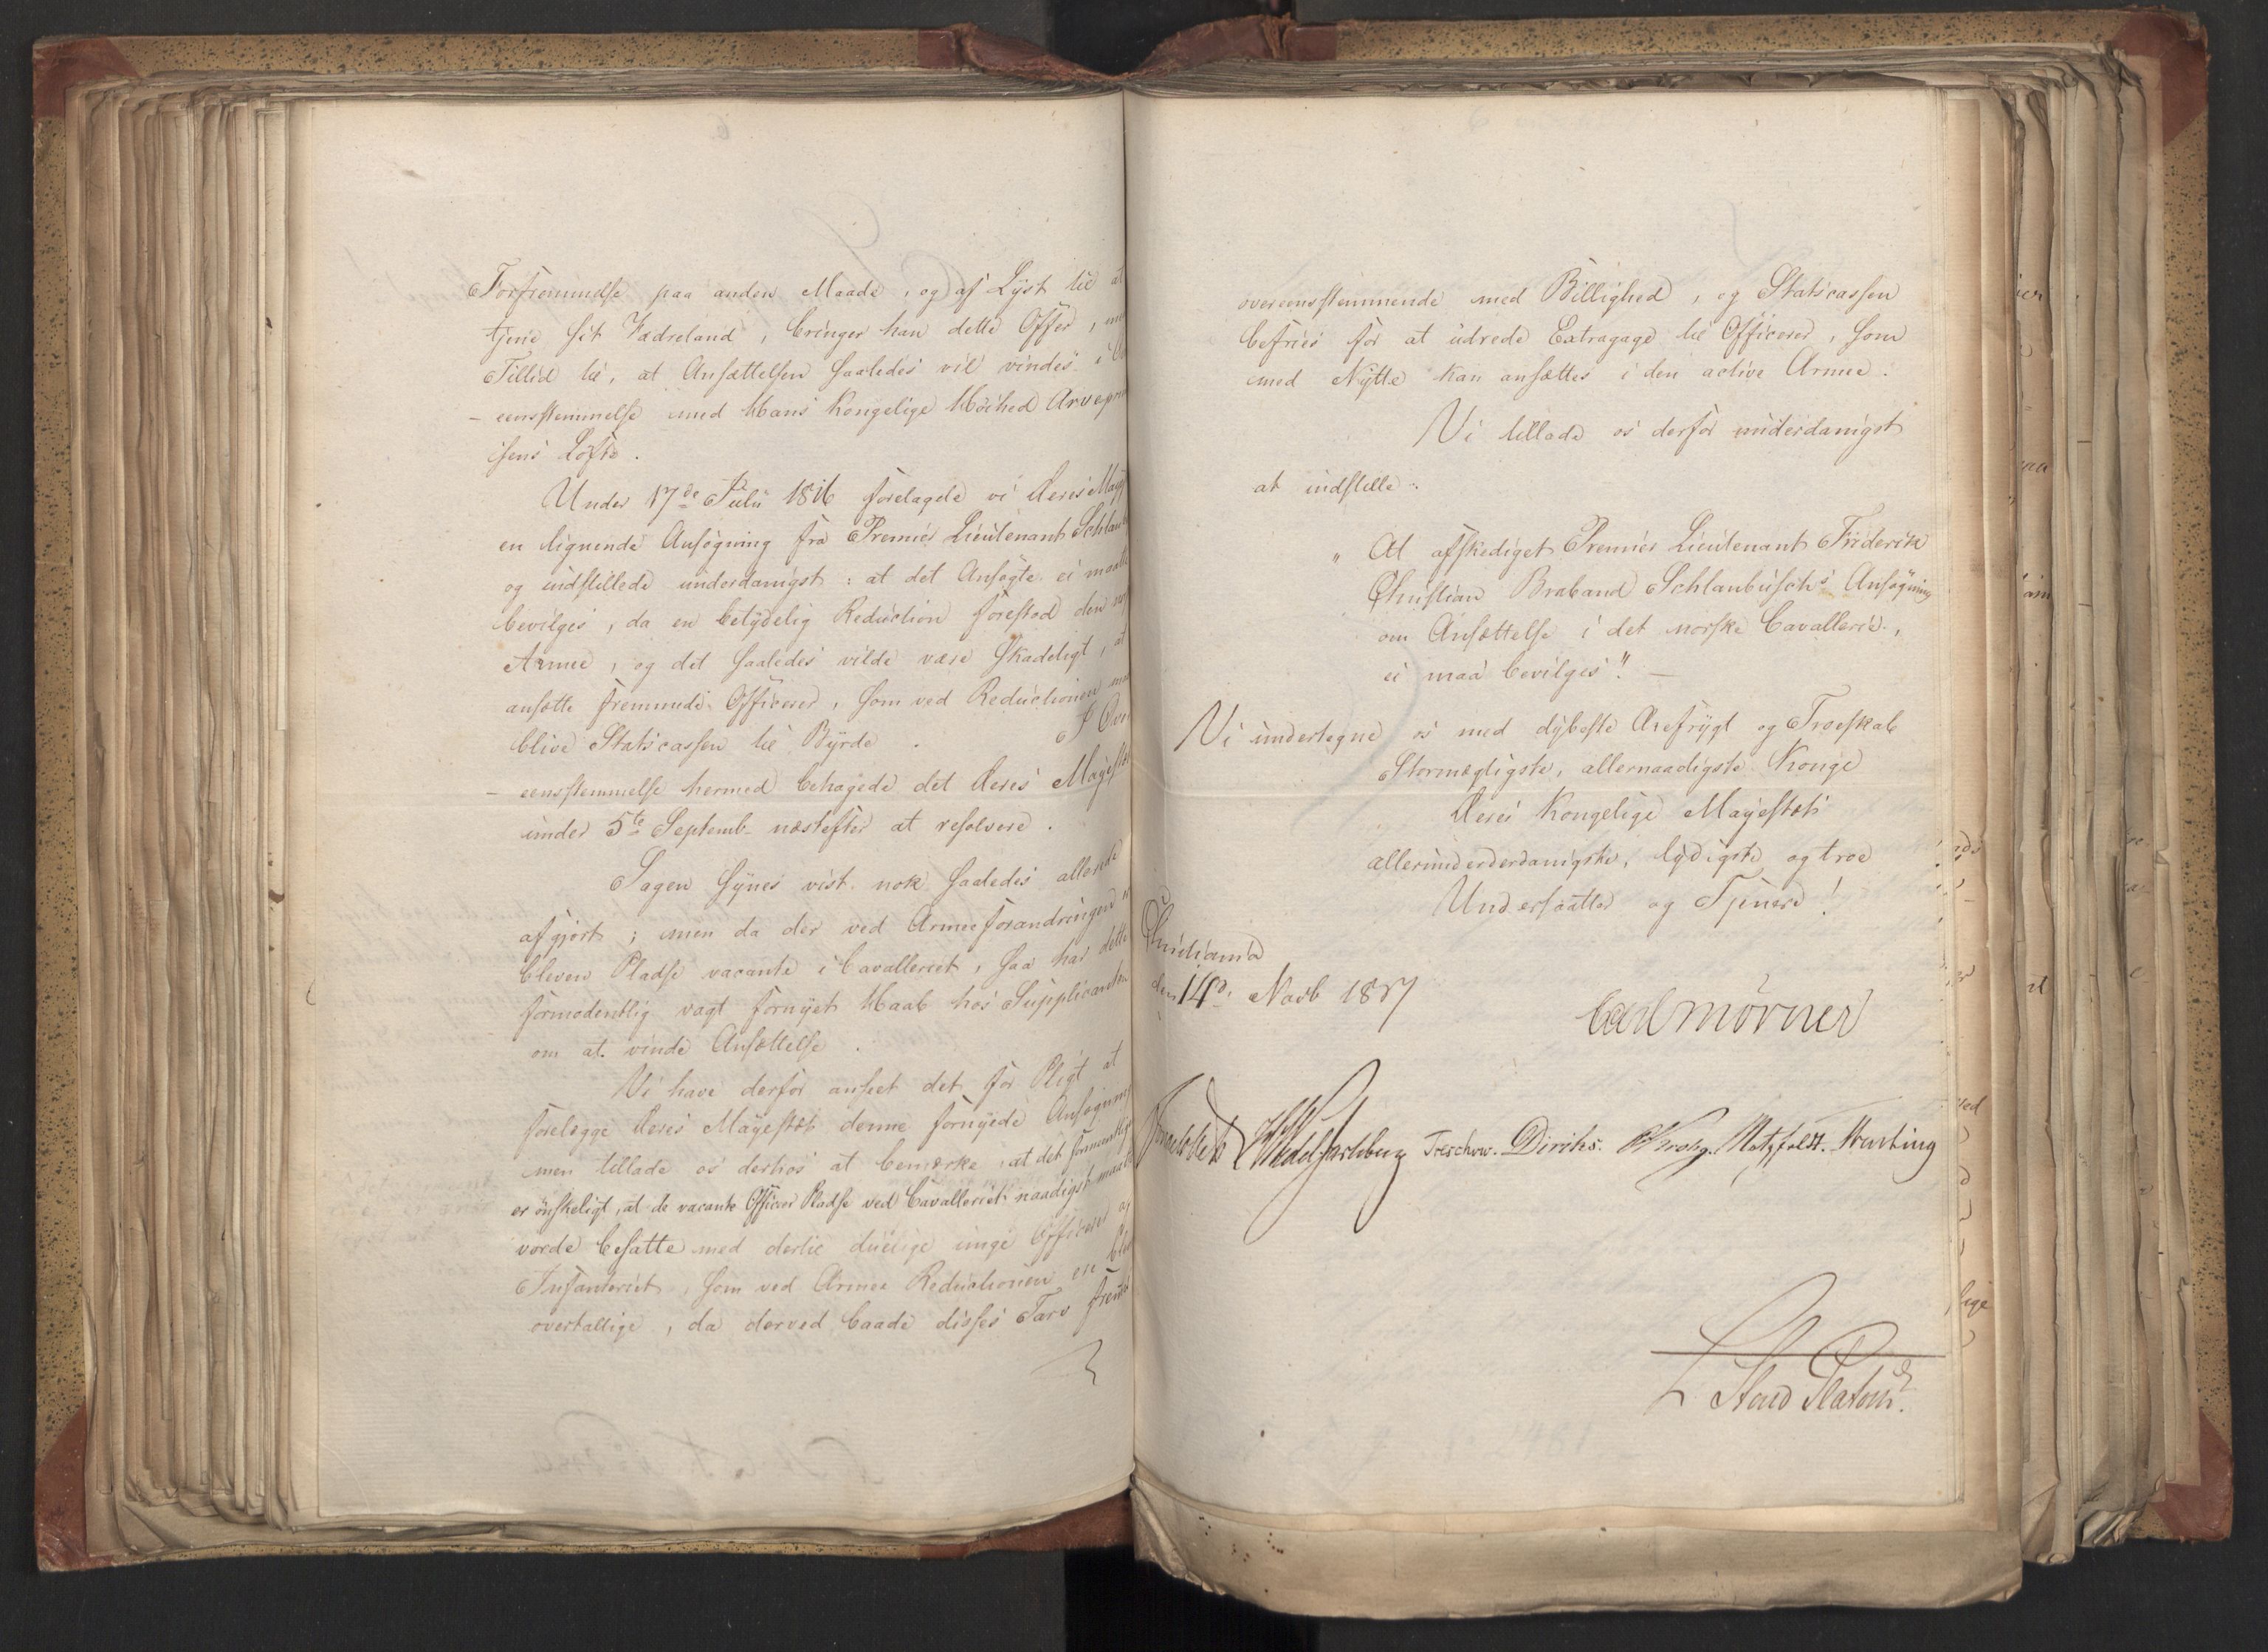 Forfremmelse paa anden Maade, og af Lyst til at
tjene sit Fædreland, bringer han dette Offer,
Tillid til, at Ansættelsen saaledes vil vindes i
- eensstemmelse med Hans Kongelige Höihed Arvepr
sens Löfte.
Under 17de Julii 1816 forelagde vi Deres Maj
en lignende Ansögning fra Premier Lieutenant Schlan
og indstillede underdanigst: at det Ansögte ei maatte
bevilges, da en betydelig Reduction forestod den
Armee, og det saaledes vilde være skadeligt, at
ansætte fremmede Officerer, som ved Reductionen
blive Statscassen til Byrde. I Ov
- eensstemmelse hermed behagede det Deres Majestæt
under 5te Septemb. næstefter at resolvere.
Sagen synes vist nok saaledes allerede
afgjort; men da der ved Armeeforandringen
bleven Pladse vacante i Cavalleriet, saa har dette
formodentlig vagt fornyet Haab hos Supplicanten
om at vinde Ansættelse.
Vi have derfor anseet det for Pligt at
forelægge Deres Majestæt denne fornyede Ansögning
men tillade os derhos at bemærke, at det formentlig
er önskeligt, at de vacante Officeer Pladse ved Cavalleriet naadigst maatte
vorde besatte med dertil duelige unge Officerer
Infanteriet, som ved Armee Reductionen en
overtallige, da derved baade disses Tarv

overeensstemmende med Billighed, og Statscassen
befries for at udrede Extragage til Officerer, som
med Nytte kan ansættes i den active Armee.
Vi tillade os derfor underdanigst
at indstille:
" At afskediget Premier Lieutenant Friderich
Christian Braband Schlanbusch's Ansögning
om Ansættelse i det norske Cavallerie,
ei maa bevilges". —
Vi undertegne os med dybeste Ærefrygt og Troeskab
Stormægtigste, allernaadigste Konge
Deres Kongelige Majestæts
allerunderderdanigste, lydigste og troe
Undersaatter og Tjenere!
Christiania
den 14d. Novb 1817
Carl Mörner
Sommerhielm HWedel Jarlsberg Treschow. Diriks. CKrohg. Motzfeldt. Hersting